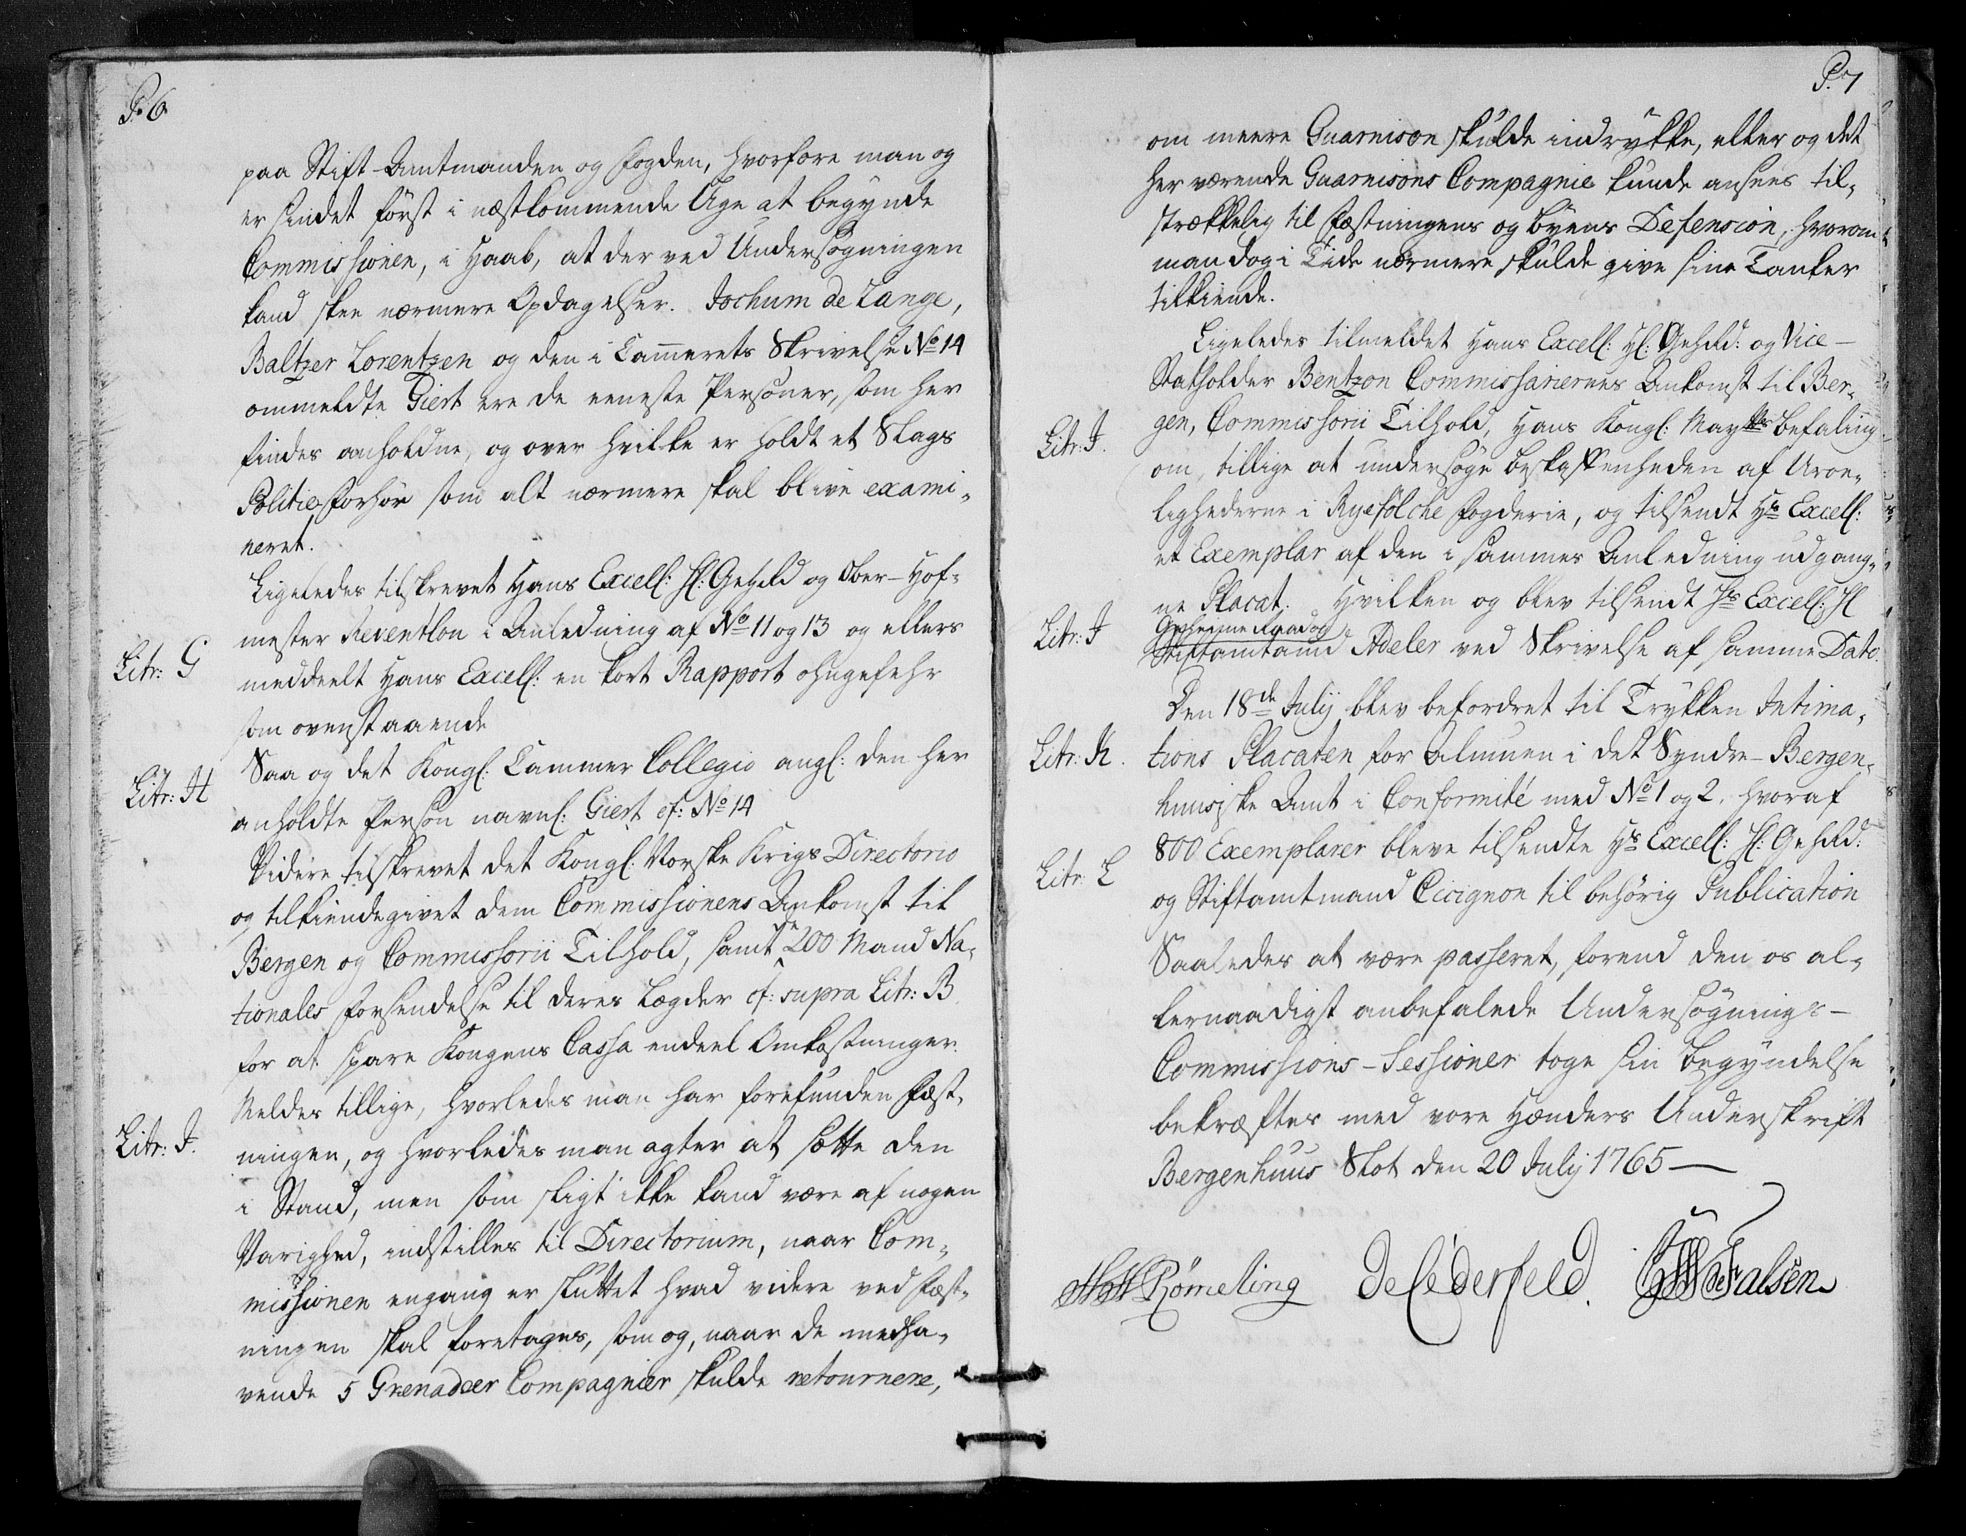 P. 6.
paa Stift-Amtmanden og Fogden, hvorfore man og
er sindet först i næstkommende Uge at begynde
Commissionen, i Haab, at der ved Undersögningen
kand skee nærmere Opdagelser. Jochum de Lange,
Baltzer Lorentzen og den i Cammerets Skrivelse No 14
ommeldte Giert ere de eeneste Personer, som her
findes anholdne, og over hvilke er holdt et Slags
Politie-forhör som alt nærmere skal blive exami-
neret.
Ligeledes tilskrevet Hans Excell: H: Gehrd og Ober-Hof-
mester Reventlou i Anledning af No 11 og 13 og ellers
Litr: G
meddeelt Hans Excell: en kort Rapport ohngefehr
som ovenstaaende
Saa og det Kongl: Cammer Collegio angl: den her
Litr: H
anholdte Person navnl: Giert cf: No 14
Videre tilskrevet det Kongl: Norske Krigs Directorio
og tilkiendegivet dem Commissionens Ankomst til
Bergen og Commissorii Tilhold, samt de 200 Mand Na-
tionales forsendelse til deres Lægder cf: supra Litr: B.
for at spare Kongens Cassa endeel Omkostninger.
Meldes tillige, hvorledes man har forefunden Fæst-
Litr: I.
ningen, og hvorledes man agter at sætte den
i Stand, men som sligt ikke kand være af nogen
Varighed, indstilles til Directorium, naar Com-
missionen engang er sluttet hvad videre ved Fæst-
ningen skal foretages, som og, naar de medha-
vende 5 Grenadeer Compagnier skulde retournere,
P. 7
om meere Guarnison skulde indrykke, eller og det
her værende Guarnisons Compagnie kunde ansees til-
strækkelig til Fæstningens og Byens Defension, hvorom
man dog i Tide nærmere skulde give sine Tanker
tilkiende.
Ligeledes tilmeldet Hans Excell: H: Gehrd: og Vice-
Statholder Bentzon Commissariernes Ankomst til Ber-
Litr: I.
gen, Commissorii Tilhold, Hans Kongl: Mayts befaling
om, tillige at undersöge beskaffenheden af Uroe-
lighederne i Ryefölcke Fogderie, og tilsendt Hs Excell:
et Exemplar af den i sammes Anledning udgang-
ne Placat. Hvilken og blev tilsendt Hs Excell: H
Geheime Raad og
Litr: I
Stiftamtmand Adeler ved Skrivelse af samme Dato.
Den 18de July blev befordret til Trykken Intima-
Litr: K.
tions Placaten for Almuen i det Syndre-Bergen-
huusiske Amt i Conformité med No 1 og 2. hvoraf
800 Exemplarer bleve tilsendte Hs Excell: H: Gehrd:
Litr: L
og Stiftamtmand Cicignon til behörig Publication
Saaledes at være passeret, forend den os al-
lernaadigst anbefalede Undersögnings-
Commissions-Sessioner toge sin begyndelse
bekræftes med vore Hænders Underskrift
Bergenhuus Slot den 20 July 1765
Römeling de Cederfeld. de Falsen